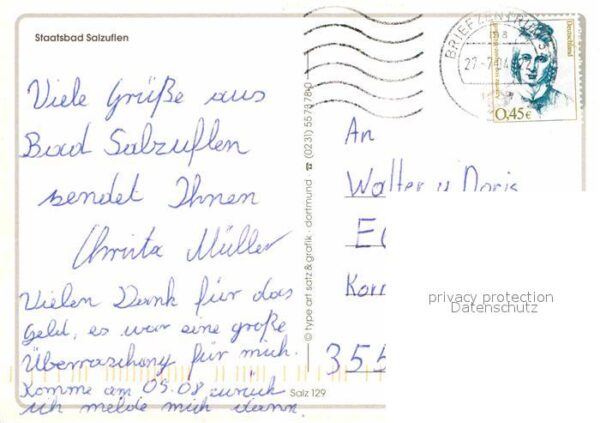 Staatsbad Salzuflen
Viele Grüße aus
Bad Salzuflen
sendet Ihnen
Christa Müller
Vielen Dank für das
Geld, es war eine große
Überraschung für mich.
Komme am 05.08 zurück
ich melde mich dann
© type art satz & grafik · dortmund · ☎ (0231) 5573780
Salz 129
BRIEFZENTRUM
Deutschland
0,45€
An
Walter u Doris
privacy protection
Datenschutz
355